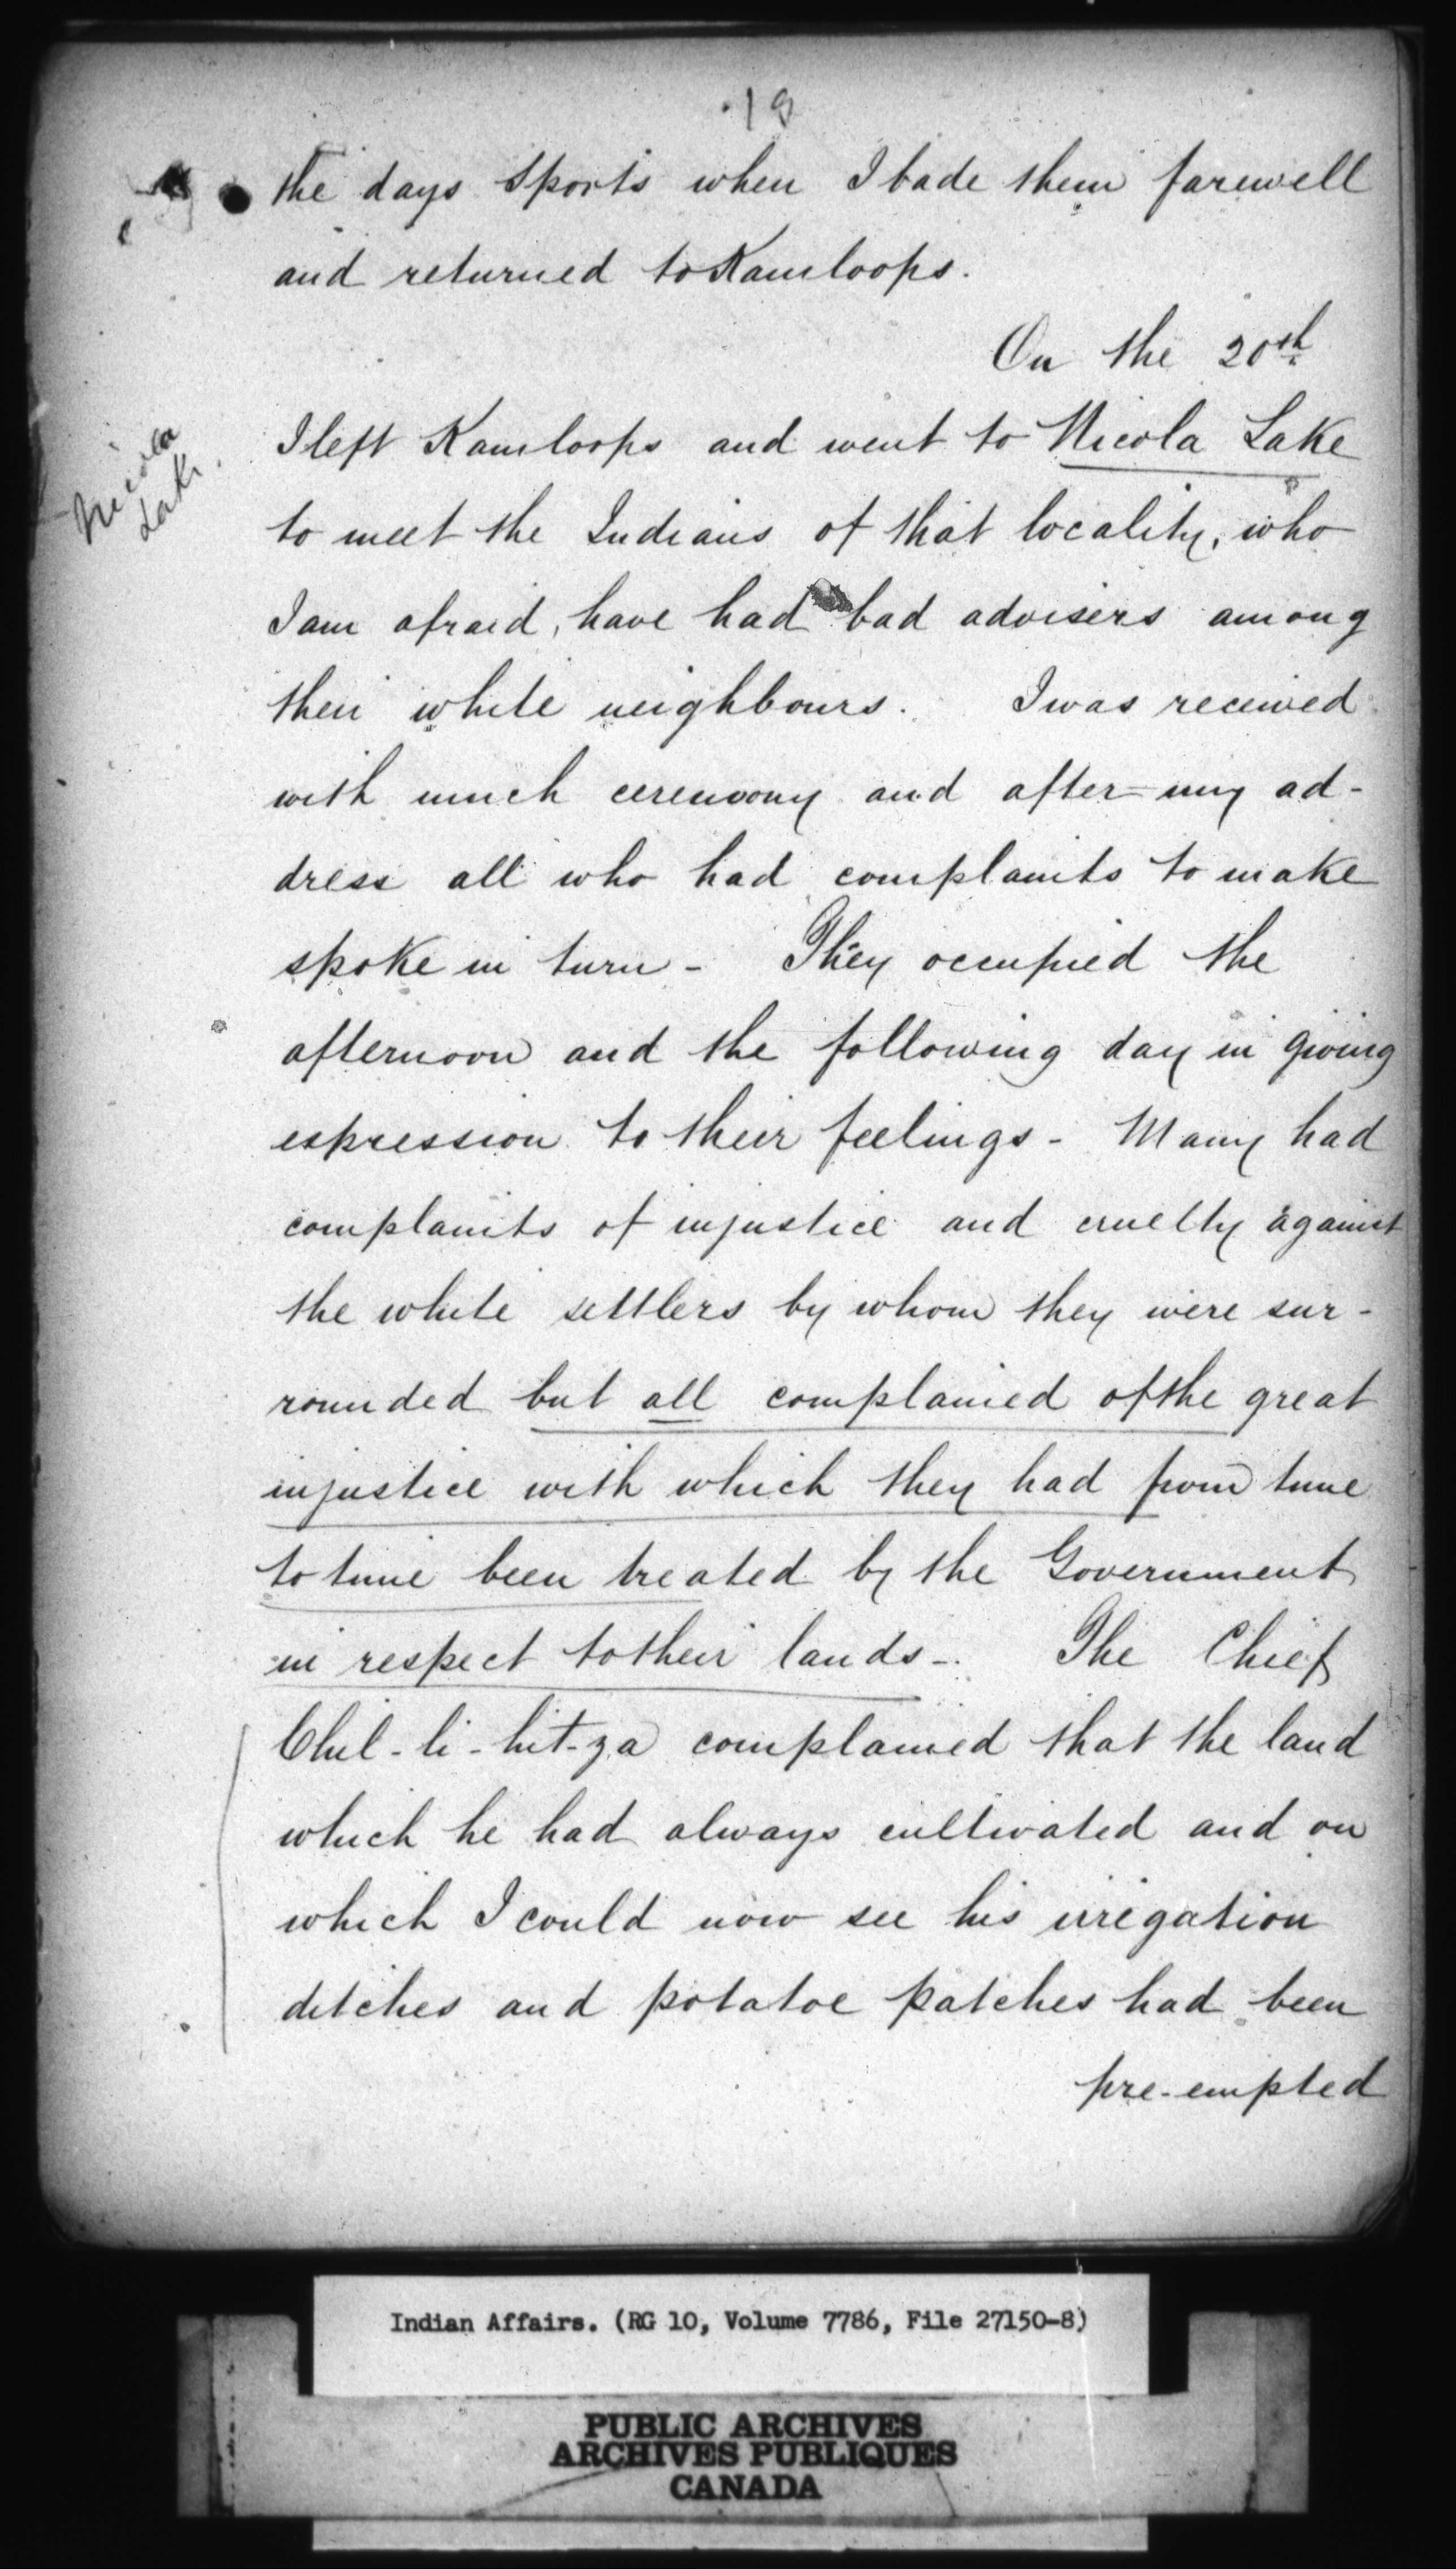 19
the days Sports when I bade them farewell
and returned to Kamloops.
On the 20th
I left Kamloops and went to Nicola Lake
Nicola
Lake.
to meet the Indians of that locality, who
I am afraid, have had bad advisers among
their white neighbours. I was received
with much ceremony and after my ad-
dress all who had complaints to make
spoke in turn - They occupied the
afternoon and the following day in giving
expression to their feelings - Many had
complaints of injustice and cruelty against
the white settlers by whom they were sur-
rounded but all complained of the great
injustice with which they had from time
to time been treated by the Government
in respect to their lands -. The Chief
Chil-li-hit-za complained that the land
which he had always cultivated and on
which I could now see his irrigation
ditches and potatoe patches had been
pre-empted
Indian Affairs. (RG 10, Volume 7786, File 27150-8)
PUBLIC ARCHIVES
ARCHIVES PUBLIQUES
CANADA